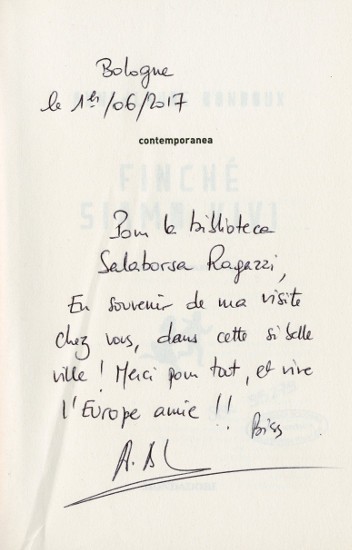 Bologne
le 1er/06/2017
contemporanea
FINCHÉ
SIAMO VIVI
Pour la biblioteca
Salaborsa Ragazzi,
En souvenir de ma visite
chez vous, dans cette si belle
ville ! Merci pour tout, et vive
l'Europe amie !!
Bises